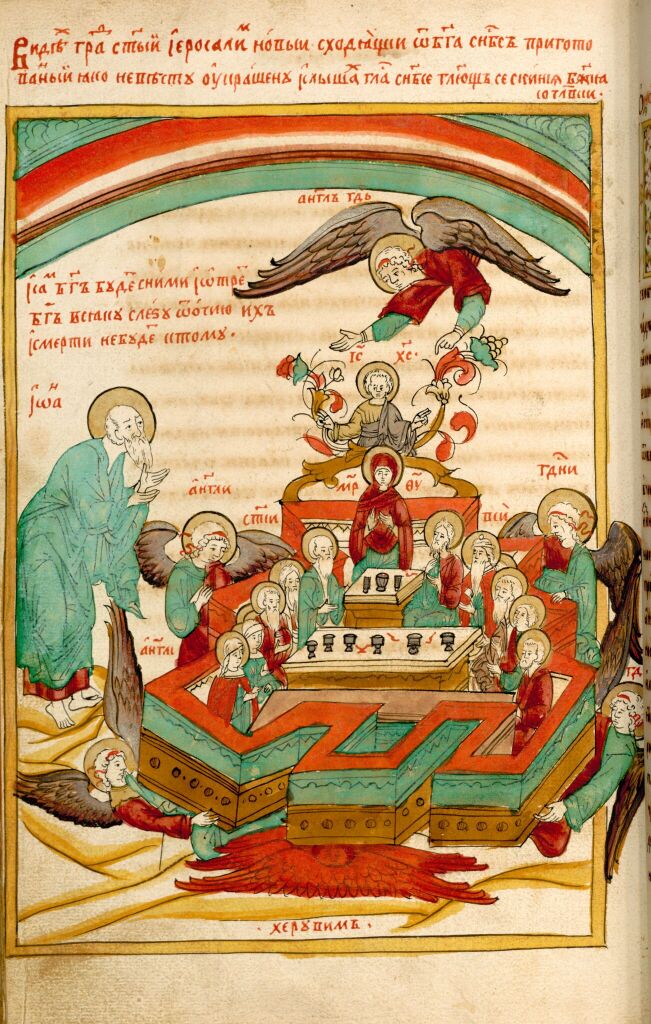 Видѣ гра ст҃ый іеросали новыи сходѧщи ѿ бг҃а сн҃бсъ пригото
ваный ꙗко невѣсту оукрашену слыша гла сн҃бсе гл҃ющъ се скинія бж҃иѧ
со чл҃вки
англъ гдь
і са бг҃ъ буде сними і ѿтре
бг҃ъ всѧку слезу ѿ очию ихъ
і смерти небуде ктому
іс҃ хс҃
іѡа
англи
ст҃іи
мр҃ ѳу҃
вси
гдни
англи
гд
херувимъ